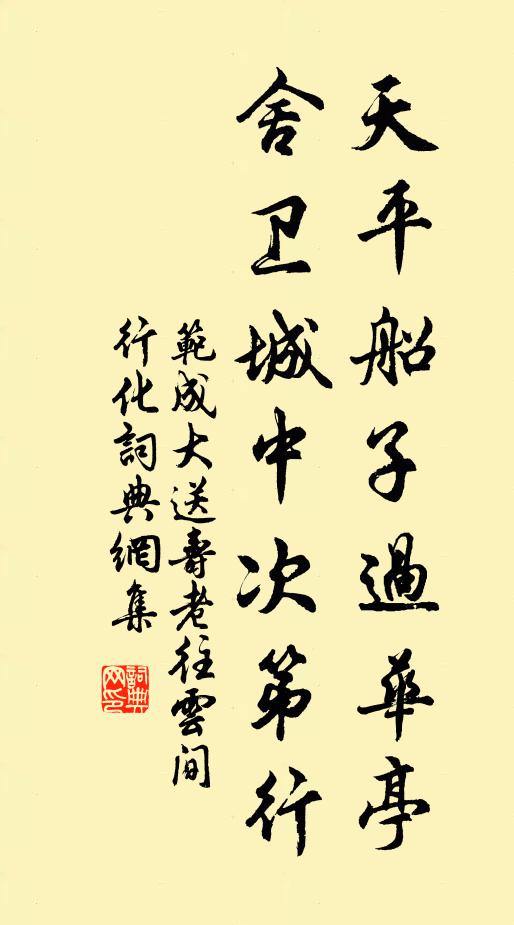 天平船子過華亭
舍卫城中次第行
範成大送壽老往雲間
行化詞典網集
詞典
网印